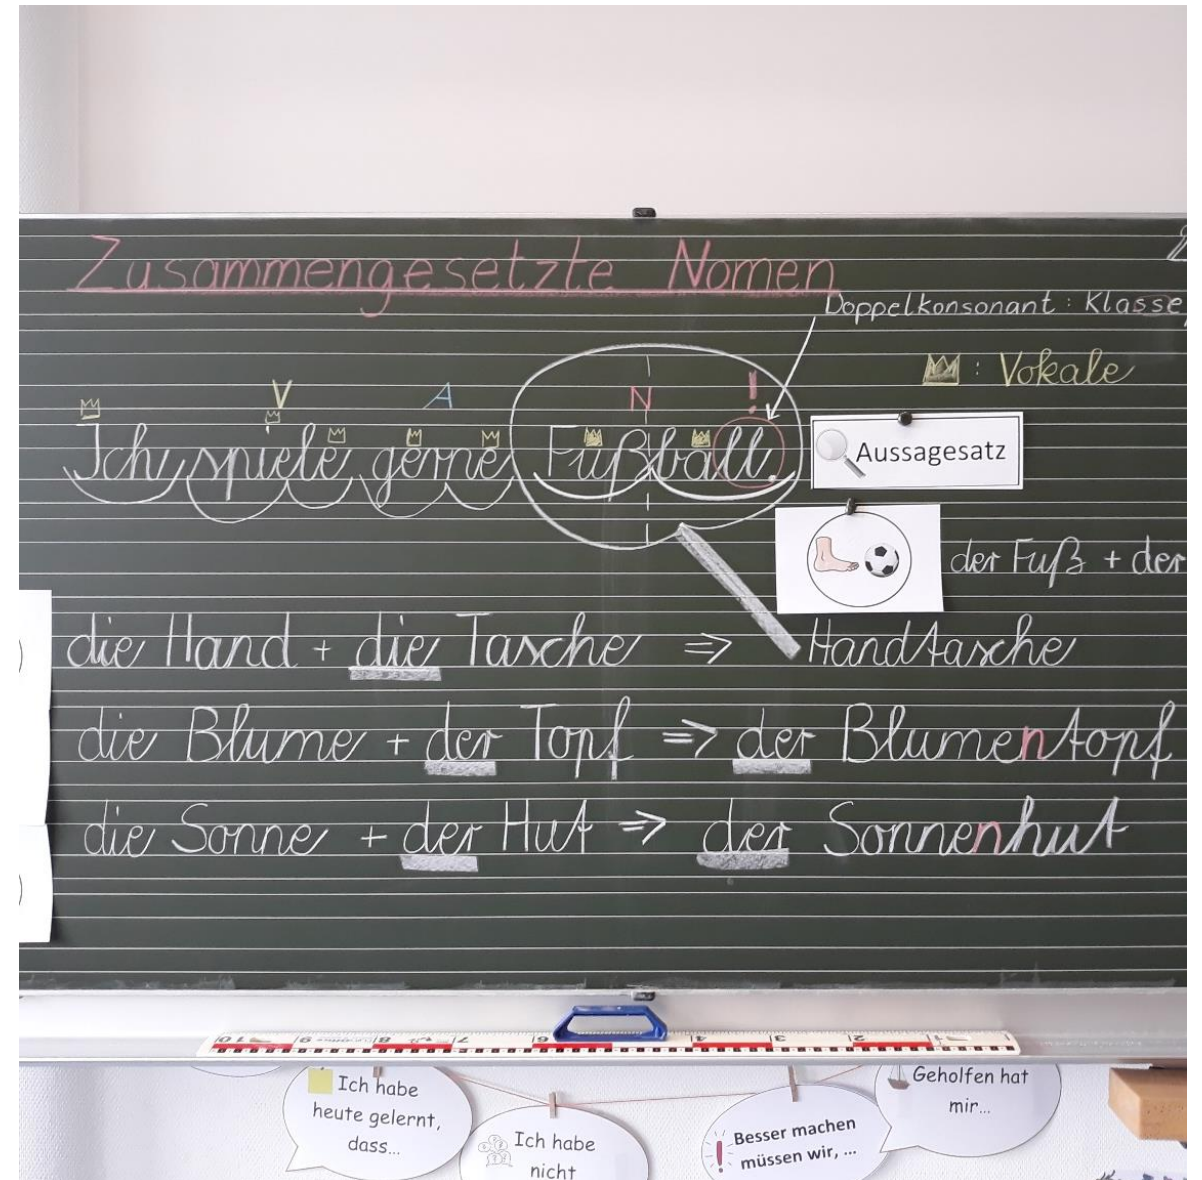 Zusammengesetzte Nomen
Doppelkonsonant : Klasse
: Vokale
V A N !
Ich spiele gerne Fußball.
Aussagesatz
der Fuß + der
die Hand + die Tasche ⇒ Handtasche
die Blume + der Topf ⇒ der Blumentopf
die Sonne + der Hut ⇒ der Sonnenhut
10 9 8 7 6 4 3 2 1
Ich habe
heute gelernt,
dass...
Ich habe
nicht
! Besser machen
müssen wir, ...
Geholfen hat
mir...